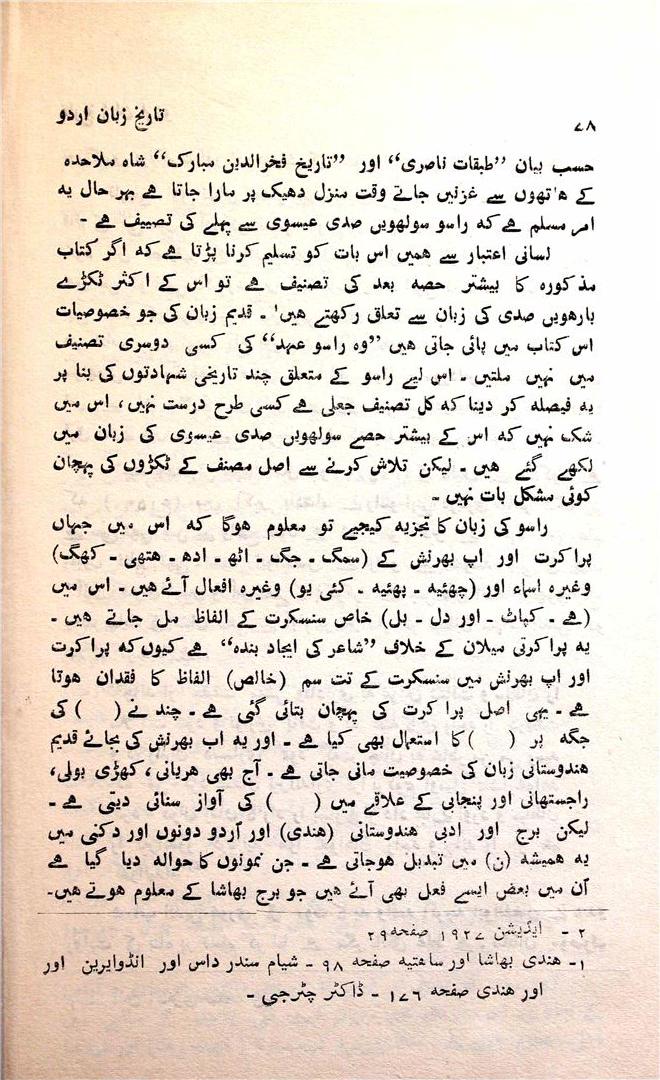 ۷۸ تاریخ زبان اردو
حسب بیان ”طبقات ناصری“ اور ”تاریخ فخرالدین مبارک“ شاہ ملاحدہ
کے ہاتھوں سے غزنیں جاتے وقت منزل دھیک پر مارا جاتا ہے بہر حال یہ
امر مسلم ہے کہ راسو سولھویں صدی عیسوی سے پہلے کی تصییف ہے ۔
لسانی اعتبار سے ہمیں اس بات کو تسلیم کرنا پڑتا ہے کہ اگر کتاب
مذکورہ کا بیشتر حصہ بعد کی تصنیف ہے تو اس کے اکثر ٹکڑے
بارہویں صدی کی زبان سے تعلق رکھتے ہیں' ۔ قدیم زبان کی جو خصوصیات
اس کتاب میں پائی جاتی ہیں ”وہ راسو عہد“ کی کسی دوسری تصنیف
میں نہیں ملتیں ۔ اس لیے راسو کے متعلق چند تاریخی شہادتوں کی بنا پر
یہ فیصلہ کر دینا کہ کل تصنیف جعلی ہے کسی طرح درست نہیں، اس میں
شک نہیں کہ اس کے بیشتر حصے سولھویں صدی عیسوی کی زبان میں
لکھے گئے ہیں ۔ لیکن تلاش کرنے سے اصل مصنف کے ٹکڑوں کی پہچان
کوئی مشکل بات نہیں ۔
راسو کی زبان کا تجزیہ کیجیے تو معلوم ہوگا کہ اس میں جہاں
پراکرت اور اپ بھرنش کے (سمگ ۔ جگ ۔ اٹھ ۔ ادھ ۔ ہتھی ۔ کھگ)
وغیرہ اسماء اور (چھئیہ ۔ پھئیہ ۔ کئی یو) وغیرہ افعال آئے ہیں ۔ اس میں
(ہے ۔ کپاٹ ۔ اور دل ۔ بل) خاص سنسکرت کے الفاظ مل جاتے ہیں ۔
یہ پراکرتی میلان کے خلاف ”شاعر کی ایجاد بندہ“ ہے کیوں کہ پراکرت
اور اپ بھرنش میں سنسکرت کے تت سم (خالص) الفاظ کا فقدان ہوتا
ہے ۔ یہی اصل پراکرت کی پہچان بتائی گئی ہے ۔ چند نے ( ) کی
جگہ پر ( ) کا استعمال بھی کیا ہے ۔ اور یہ اب بھرنش کی بجائے قدیم
ہندوستانی زبان کی خصوصیت مانی جاتی ہے ۔ آج بھی ہریانی، کھڑی بولی،
راجستھانی اور پنجابی کے علاقے میں ( ) کی آواز سنائی دیتی ہے ۔
لیکن برج اور ادبی ہندوستانی (ہندی) اور اُردو دونوں اور دکنی میں
یہ ہمیشہ (ن) میں تبدیل ہوجاتی ہے ۔ جن نمونوں کا حوالہ دیا گیا ہے
اُن میں بعض ایسے فعل بھی آئے ہیں جو برج بھاشا کے معلوم ہوتے ہیں۔
۲ ۔ ایڈیشن ۱۹۲۷ صفحہ ۲۹
۱۔ ہندی بھاشا اور ساہتیہ صفحہ ۹۸ ۔ شیام سندر داس اور انڈوایرین اور
اور ہندی صفحہ ۱۷۶ ۔ ڈاکٹر چٹرجی ۔